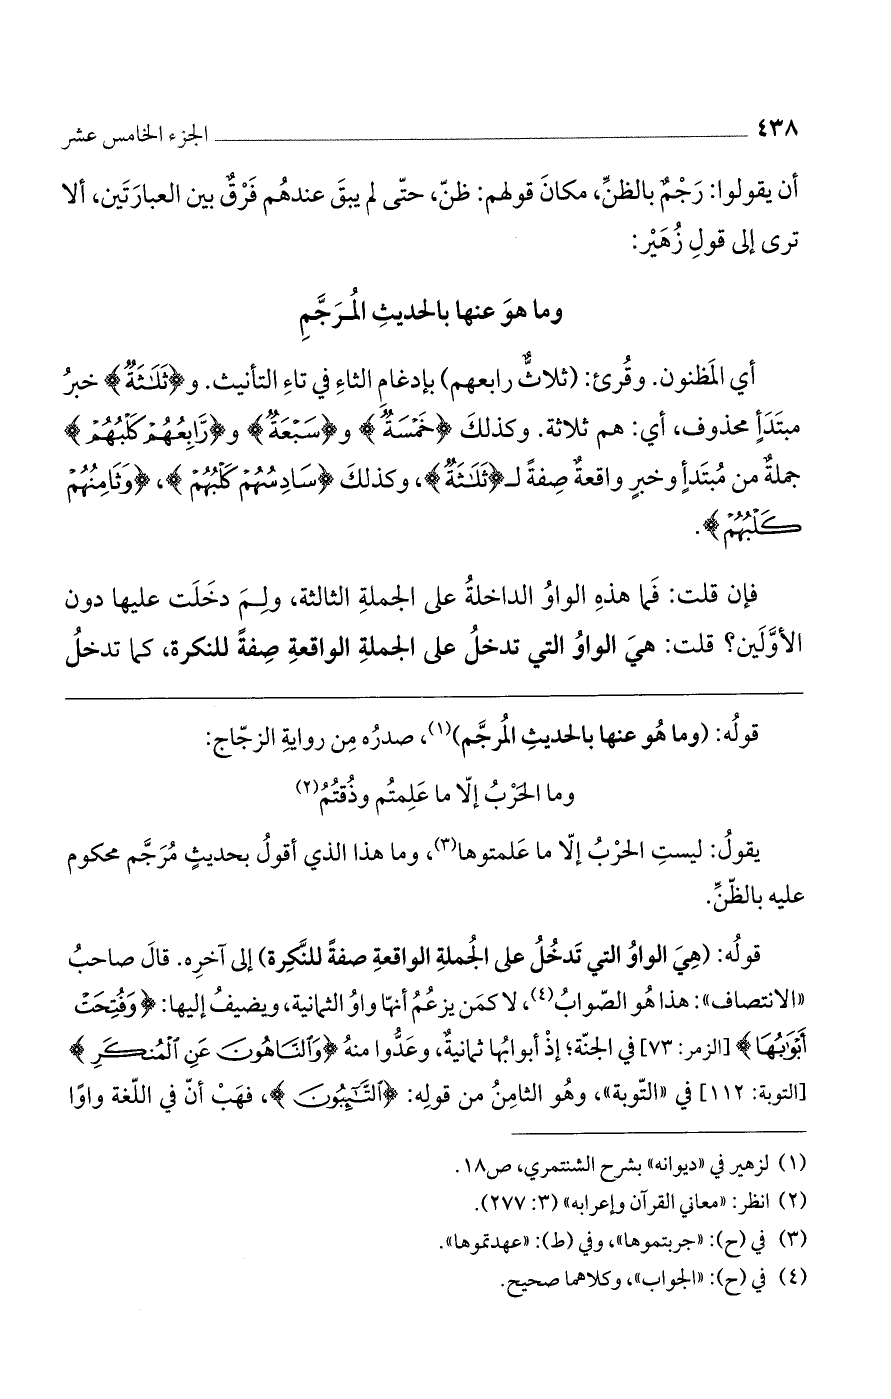 ٤٣٨ الجزء الخامس عشر
أن يقولوا: رَجْمٌ بالظنِّ، مكانَ قولهم: ظنّ، حتّى لم يبقَ عندهُم فَرْقٌ بين العبارَتَين، ألا
ترى إلى قولِ زُهَيْر:
وما هوَ عنها بالحديثِ المُرَجَّمِ
أي المَظنون. وقُرئ: (ثلاثٌّ رابعهم) بإدغامِ الثاءِ في تاءِ التأنيث. و﴿ثَلَـٰثَةٌ﴾ خبرُ
مبتَدَأٍ محذوف، أي: هم ثلاثة. وكذلكَ ﴿خَمْسَةٌ﴾ و﴿سَبْعَةٌ﴾ و﴿رَّابِعُهُمْ كَلْبُهُمْ﴾
جملةٌ من مُبتَدأٍ وخبرٍ واقعةٌ صِفةً لـ﴿ثَلَـٰثَةٌ﴾، وكذلكَ ﴿سَادِسُهُمْ كَلْبُهُمْ﴾، ﴿وَثَامِنُهُمْ
كَلْبُهُمْ﴾.
فإن قلت: فَما هذهِ الواوُ الداخلةُ على الجملةِ الثالثة، ولِـمَ دخَلَت عليها دون
الأوَّلَين؟ قلت: هيَ الواوُ التي تدخلُ على الجملةِ الواقعةِ صِفةً للنكرة، كما تدخلُ
قولُه: (وما هُو عنها بالحديثِ المُرجَّم)(١)، صدرُه مِن روايةِ الزجّاج:
وما الحَرْبُ إلّا ما عَلِمتُم وذُقتُمُ(٢)
يقولُ: ليستِ الحرْبُ إلّا ما عَلمتوها(٣)، وما هذا الذي أقولُ بحديثٍ مُرَجَّم محكوم
عليه بالظّنِّ.
قولُه: (هِيَ الواوُ التي تَدخُلُ على الجُملةِ الواقعةِ صفةً للنَّكِرة) إلى آخرِه. قالَ صاحبُ
«الانتصاف»: هذا هُو الصّوابُ(٤)، لا كمَن يزعُمُ أنهّا واوُ الثمانية، ويضيفُ إليها: ﴿وَفُتِحَتْ
أَبْوَٰبُهَا﴾ [الزمر: ٧٣] في الجنّة؛ إذْ أبوابُها ثمانيةٌ، وعَدُّوا منهُ ﴿وَٱلنَّاهُونَ عَنِ ٱلْمُنكَرِ﴾
[التوبة: ١١٢] في «التّوبة»، وهُو الثامنُ من قولِه: ﴿ٱلتَّـٰٓئِبُونَ﴾، فهَبْ أنّ في اللّغة واوًا
(١) لزهير في «ديوانه» بشرح الشنتمري، ص١٨.
(٢) انظر: «معاني القرآن وإعرابه» (٣: ٢٧٧).
(٣) في (ح): «جربتموها»، وفي (ط): «عهدتموها».
(٤) في (ح): «الجواب»، وكلاهما صحيح.